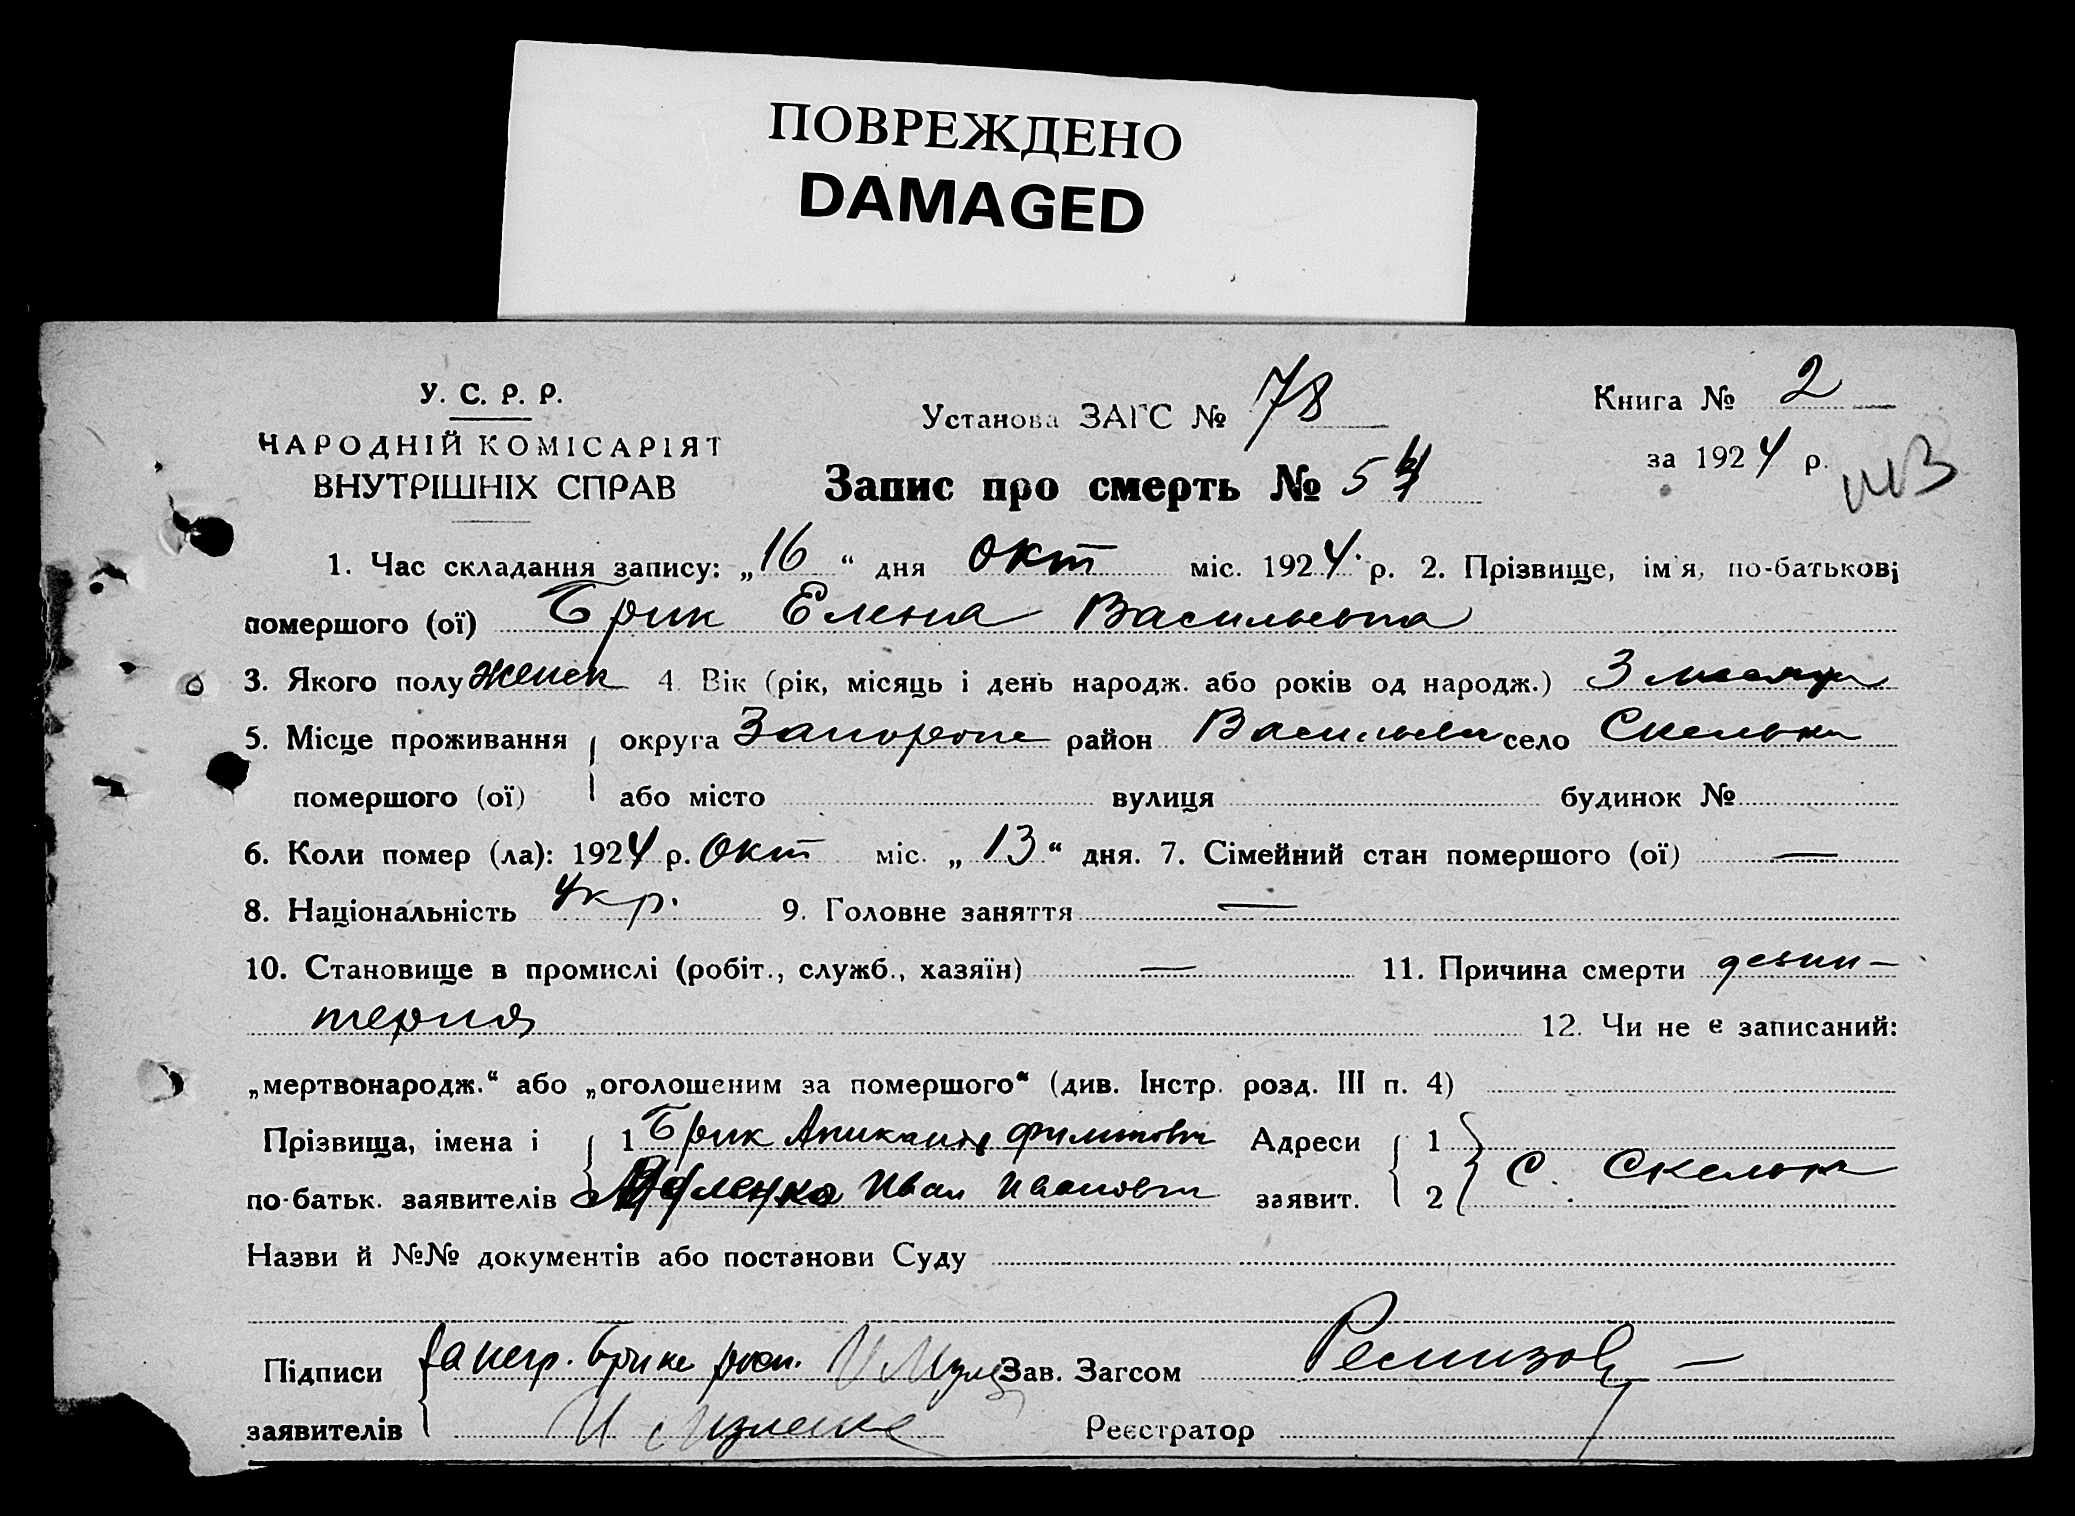 ПОВРЕЖДЕНО
DAMAGED
У. С. Р. Р.
НАРОДНІЙ КОМІСАРІЯТ
ВНУТРІШНІХ СПРАВ
Установа ЗАГС № 78
Книга № 2
за 1924 р.
Запис про смерть № 5
1. Час складання запису: „16“ дня окт міс. 1924 р. 2. Прізвище, ім'я, по-батькові
помершого (ої) Брик Елена Васильевна
3. Якого полу женск 4. Вік (рік, місяць і день народж. або років од народж.) 3 месяца
5. Місце проживання округа Запорож район Васильев село Скельки
помершого (ої) або місто вулиця будинок №
6. Коли помер (ла): 1924 р. окт міс. „13“ дня. 7. Сімейний стан помершого (ої) —
8. Національність укр. 9. Головне заняття —
10. Становище в промислі (робіт., служб., хазяїн) — 11. Причина смерти дезин-
терия 12. Чи не є записаний:
„мертвонародж.“ або „оголошеним за помершого“ (див. Інстр. розд. III п. 4)
Прізвища, імена і 1 Брик Адреси 1
по-батьк. заявителів 2 Иван Иванович заявит. 2 С. Скельки
Назви й №№ документів або постанови Суду
Підписи За негр. Брик росп. Зав. Загсом Ремизов
заявителів Реєстратор